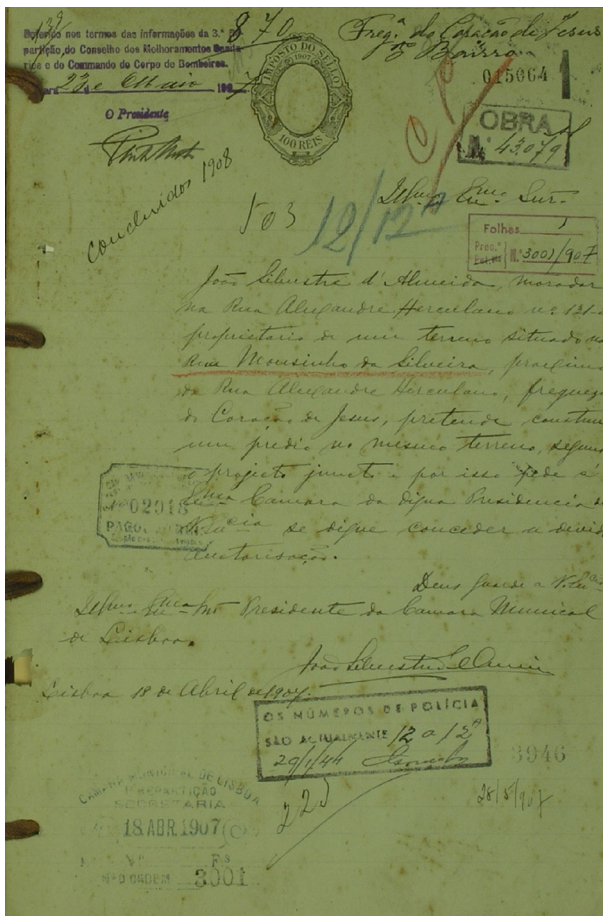 870
Deferido nos termos das informações da 3.ª
partição do Conselho dos Melhoramentos
rios e do Commando do Corpo de Bombeiros.
23 de Maio
O Presidente
Concluidos 1908
IMPOSTO DO SELLO
1907
100 REIS
Freg.ª do Coração de Jesus
Bairro
015064
OBRA
N.º 43.079
503
12/12A
Illmo Exmo Snr.
Folhas 1
N.º 3001/907
João Silvestre d'Almeida, morador
na Rua Alexandre Herculano nº 131
proprietario de um terreno situado na
Rua Mousinho da Silveira, proximo
da Rua Alexandre Herculano, freguezia
do Coração de Jesus, pretende construir
um predio no mesmo terreno, segundo
o projecto junto e por isso pede á
Exma Camara da digna Presidencia de
V. Excia se digne conceder a devida
auctorisação.
Deus Guarde a V. Excia
Illmo Exmo Snr Presidente da Camara Municipal
de Lisboa.
João Silvestre d'Almeida
Lisboa 18 de Abril de 1907.
02918
OS NÚMEROS DE POLÍCIA
SÃO ACTUALMENTE 12 a 12A
29/1/44
3946
28/5/907
225
CAMARA MUNICIPAL DE LISBOA
1ª REPARTIÇÃO
SECRETARIA
18 ABR. 1907
Fs
Nº D'ORDEM 3001